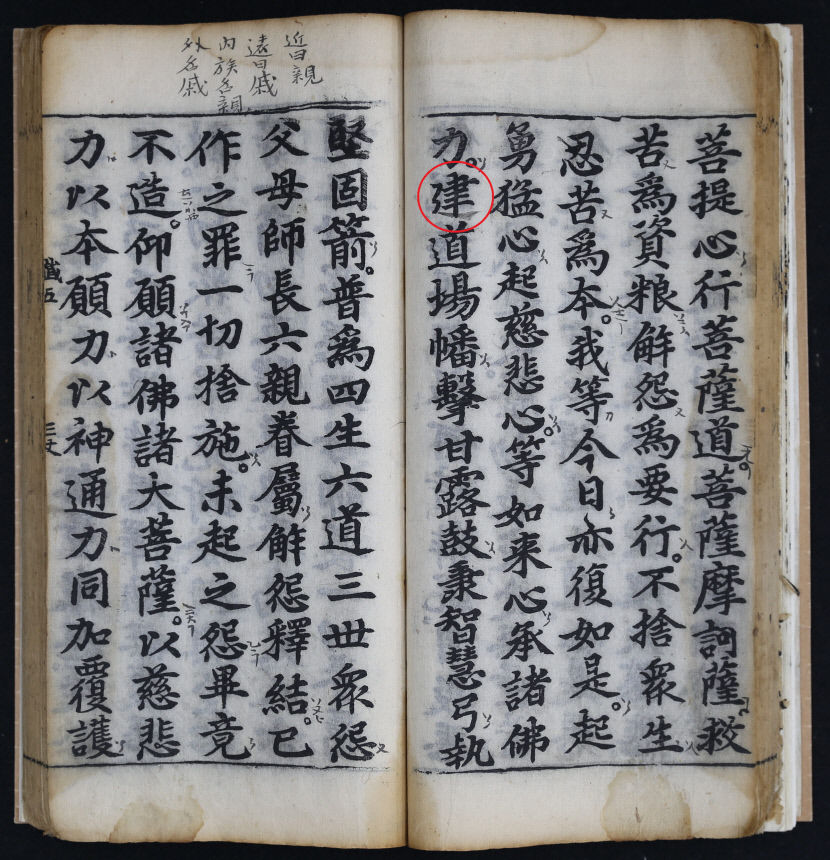 菩提心行菩薩道。菩薩摩訶薩救
苦為資粮觧怨為要行。不捨衆生
忍苦為本。我等今日亦復如是。起
勇猛心起慈悲心。等如来心承諸佛
力。建道場幡擊甘露鼓秉智慧弓執
近曰親
遠曰戚
內族名親
外名戚
堅固箭。普爲四生六道三世衆怨
父母師長六親眷屬觧怨釋結。已
作之罪一切捨施。未起之怨畢竟
不造。仰願諸佛諸大菩薩。以慈悲
力以本願力以神通力同加覆護
懺五